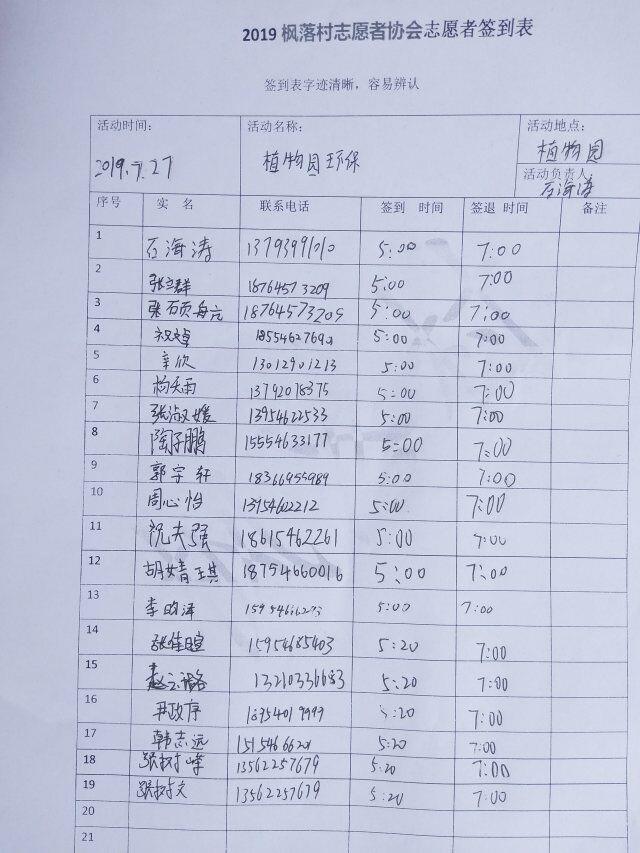 2019 枫落村志愿者协会志愿者签到表
签到表字迹清晰，容易辨认
活动时间： 活动名称： 活动地点：
2019.7.27 植物园环保 植物园
活动负责人：
石海涛
序号 实 名 联系电话 签到 时间 签退 时间 备注
1 石海涛 5:00 7:00
2 张立群 18764573209 5:00 7:00
3 18764573209 5:00 7:00
4 5:00 7:00
5 辛欣 13012901213 5:00 7:00
6 杨天雨 13792078375 5:00 7:00
7 张淑媛 13954622533 5:00 7:00
8 陶子鹏 15554633177 5:00 7:00
9 郭宇轩 18366955989 5:00 7:00
10 周心怡 13954602212 5:00 7:00
11 祝夫强 18615462261 5:00 7:00
12 胡婧琪 18754660016 5:00 7:00
13 李昀泽 5:00 7:00
14 张佳暄 15954685403 5:20 7:00
15 13210336683 5:20 7:00
16 尹政序 18954019999 5:20 7:00
17 韩志远 5:20 7:00
18 张树峰 13562257679 5:20 7:00
19 张树文 13562257679 5:20 7:00
20
21